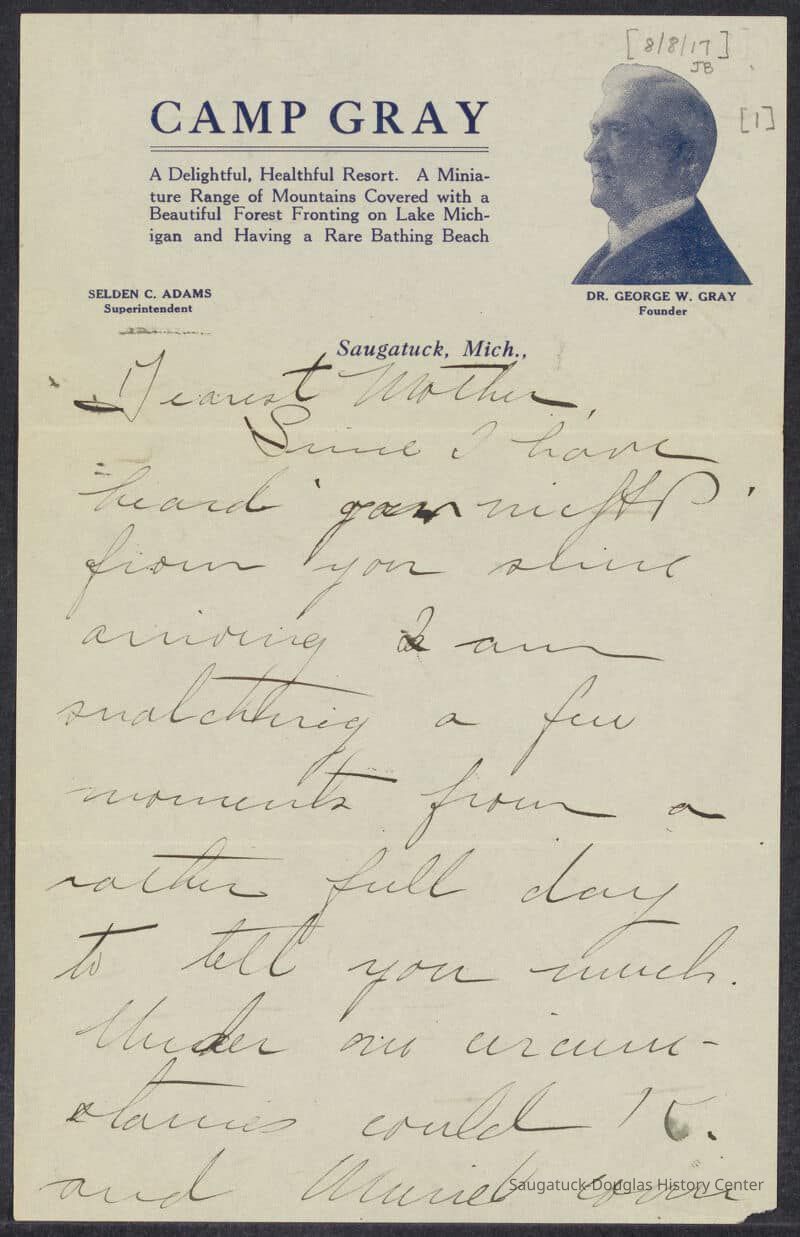 [8/8/17]
JB
[1]
CAMP GRAY
A Delightful, Healthful Resort. A Minia-
ture Range of Mountains Covered with a
Beautiful Forest Fronting on Lake Mich-
igan and Having a Rare Bathing Beach
SELDEN C. ADAMS
Superintendent
DR. GEORGE W. GRAY
Founder
Saugatuck, Mich.,
Dearest Mother,
Since I have
heard "gar nichts"
from you since
arriving I am
snatching a few
moments from a
rather full day
to tell you much.
Under no circum-
stances could K.
and Muriel come
Saugatuck-Douglas History Center